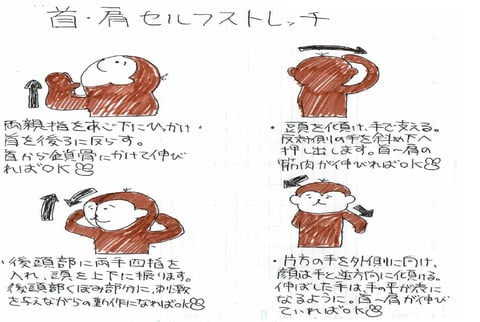 首・肩セルフストレッチ
両親指をあご下にひっかけ・
首を後ろに反らす。
首から鎖骨にかけて伸び
ればOK
・頭を傾け、手で支える。
反対側の手を斜め下へ
押し出します。首〜肩の
筋肉が伸びればOK
・後頭部に両手四指を
入れ、頭を上下に振ります。
後頭部くぼみ部分に、刺激
を与えながらの動作になればOK
・片方の手を外側に向け、
顔は手と逆方向に傾ける。
伸ばした手は、手の平が表に
なるように。首〜肩が伸び
ていればOK